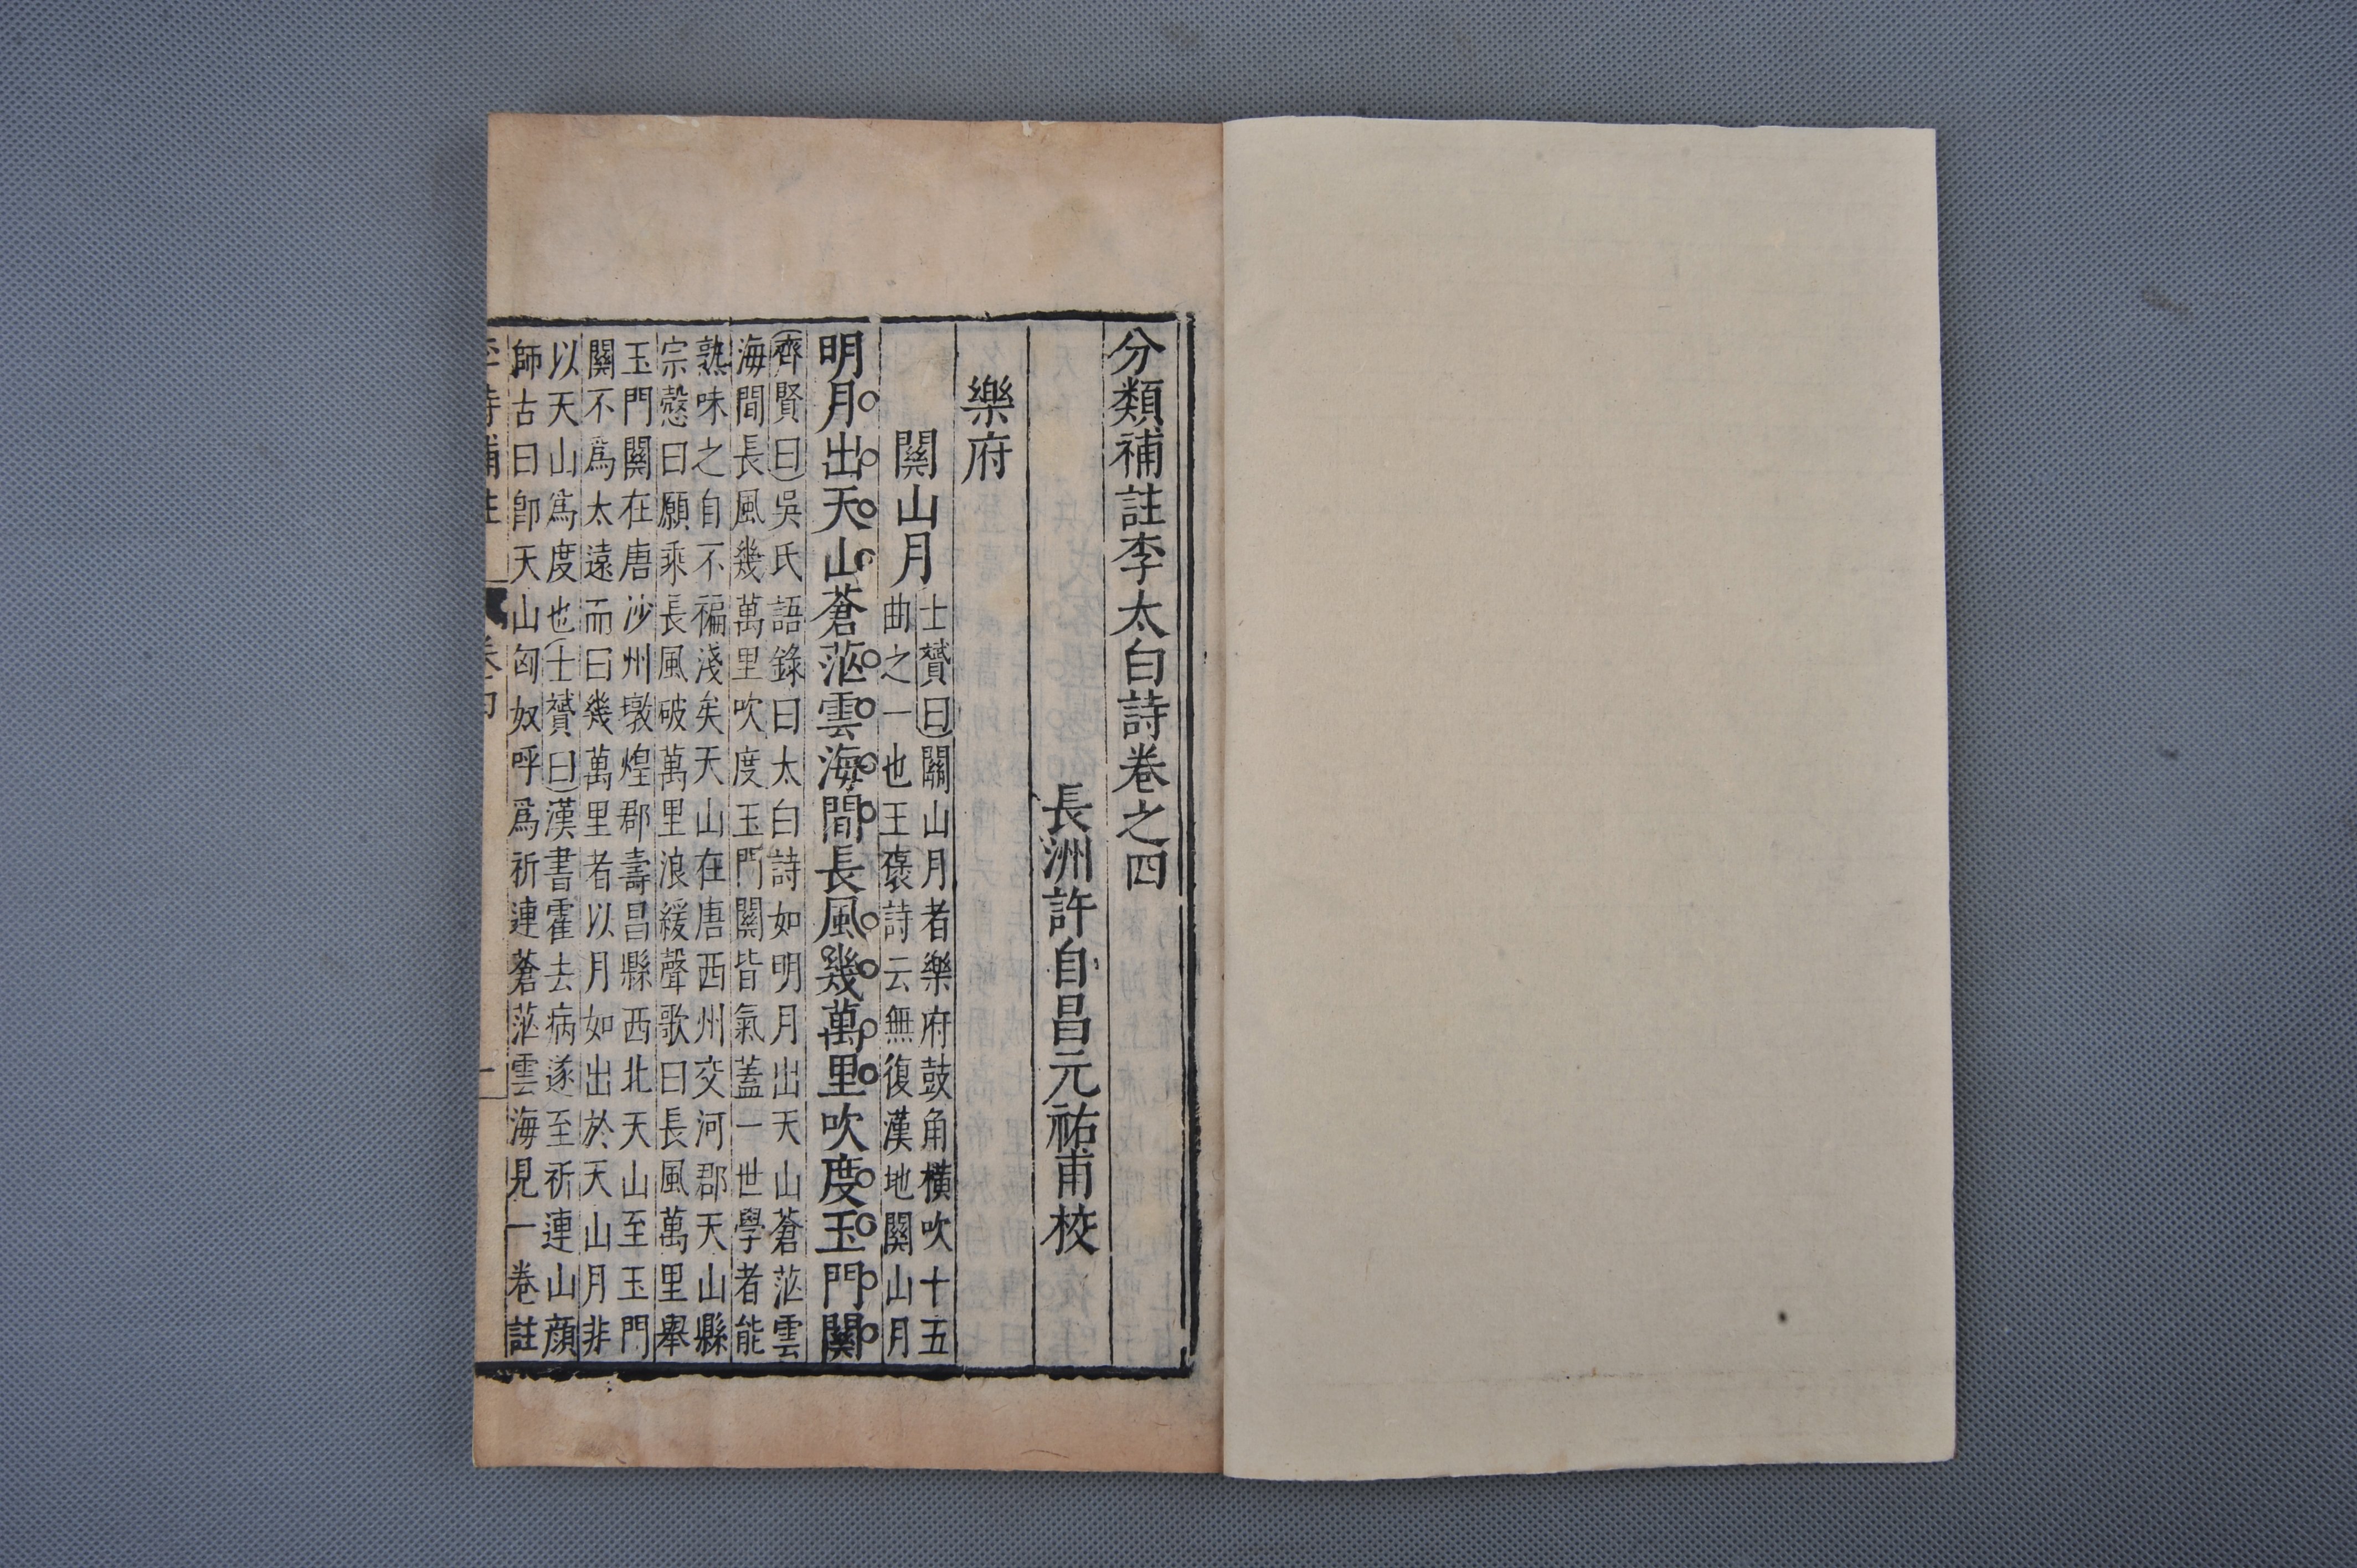 分類補註李太白詩卷之四
長洲許自昌元祐甫校
樂府
關山月
士贇曰關山月者樂府鼓角橫吹十五
曲之一也王褒詩云無復漢地關山月
明月出天山蒼茫雲海間長風幾萬里吹度玉門關
齊賢曰吳氏語錄曰太白詩如明月出天山蒼茫雲
海間長風幾萬里吹度玉門關皆氣蓋一世學者能
熟味之自不褊淺矣天山在唐西州交河郡天山縣
宗愨曰願乘長風破萬里浪緩聲歌曰長風萬里舉
玉門關在唐沙州墩煌郡壽昌縣西北天山至玉門
關不爲太遠而曰幾萬里者以月如出於天山月非
以天山爲度也士贇曰漢書霍去病遂至祈連山顔
師古曰卽天山匈奴呼爲祈連蒼茫雲海見一卷註